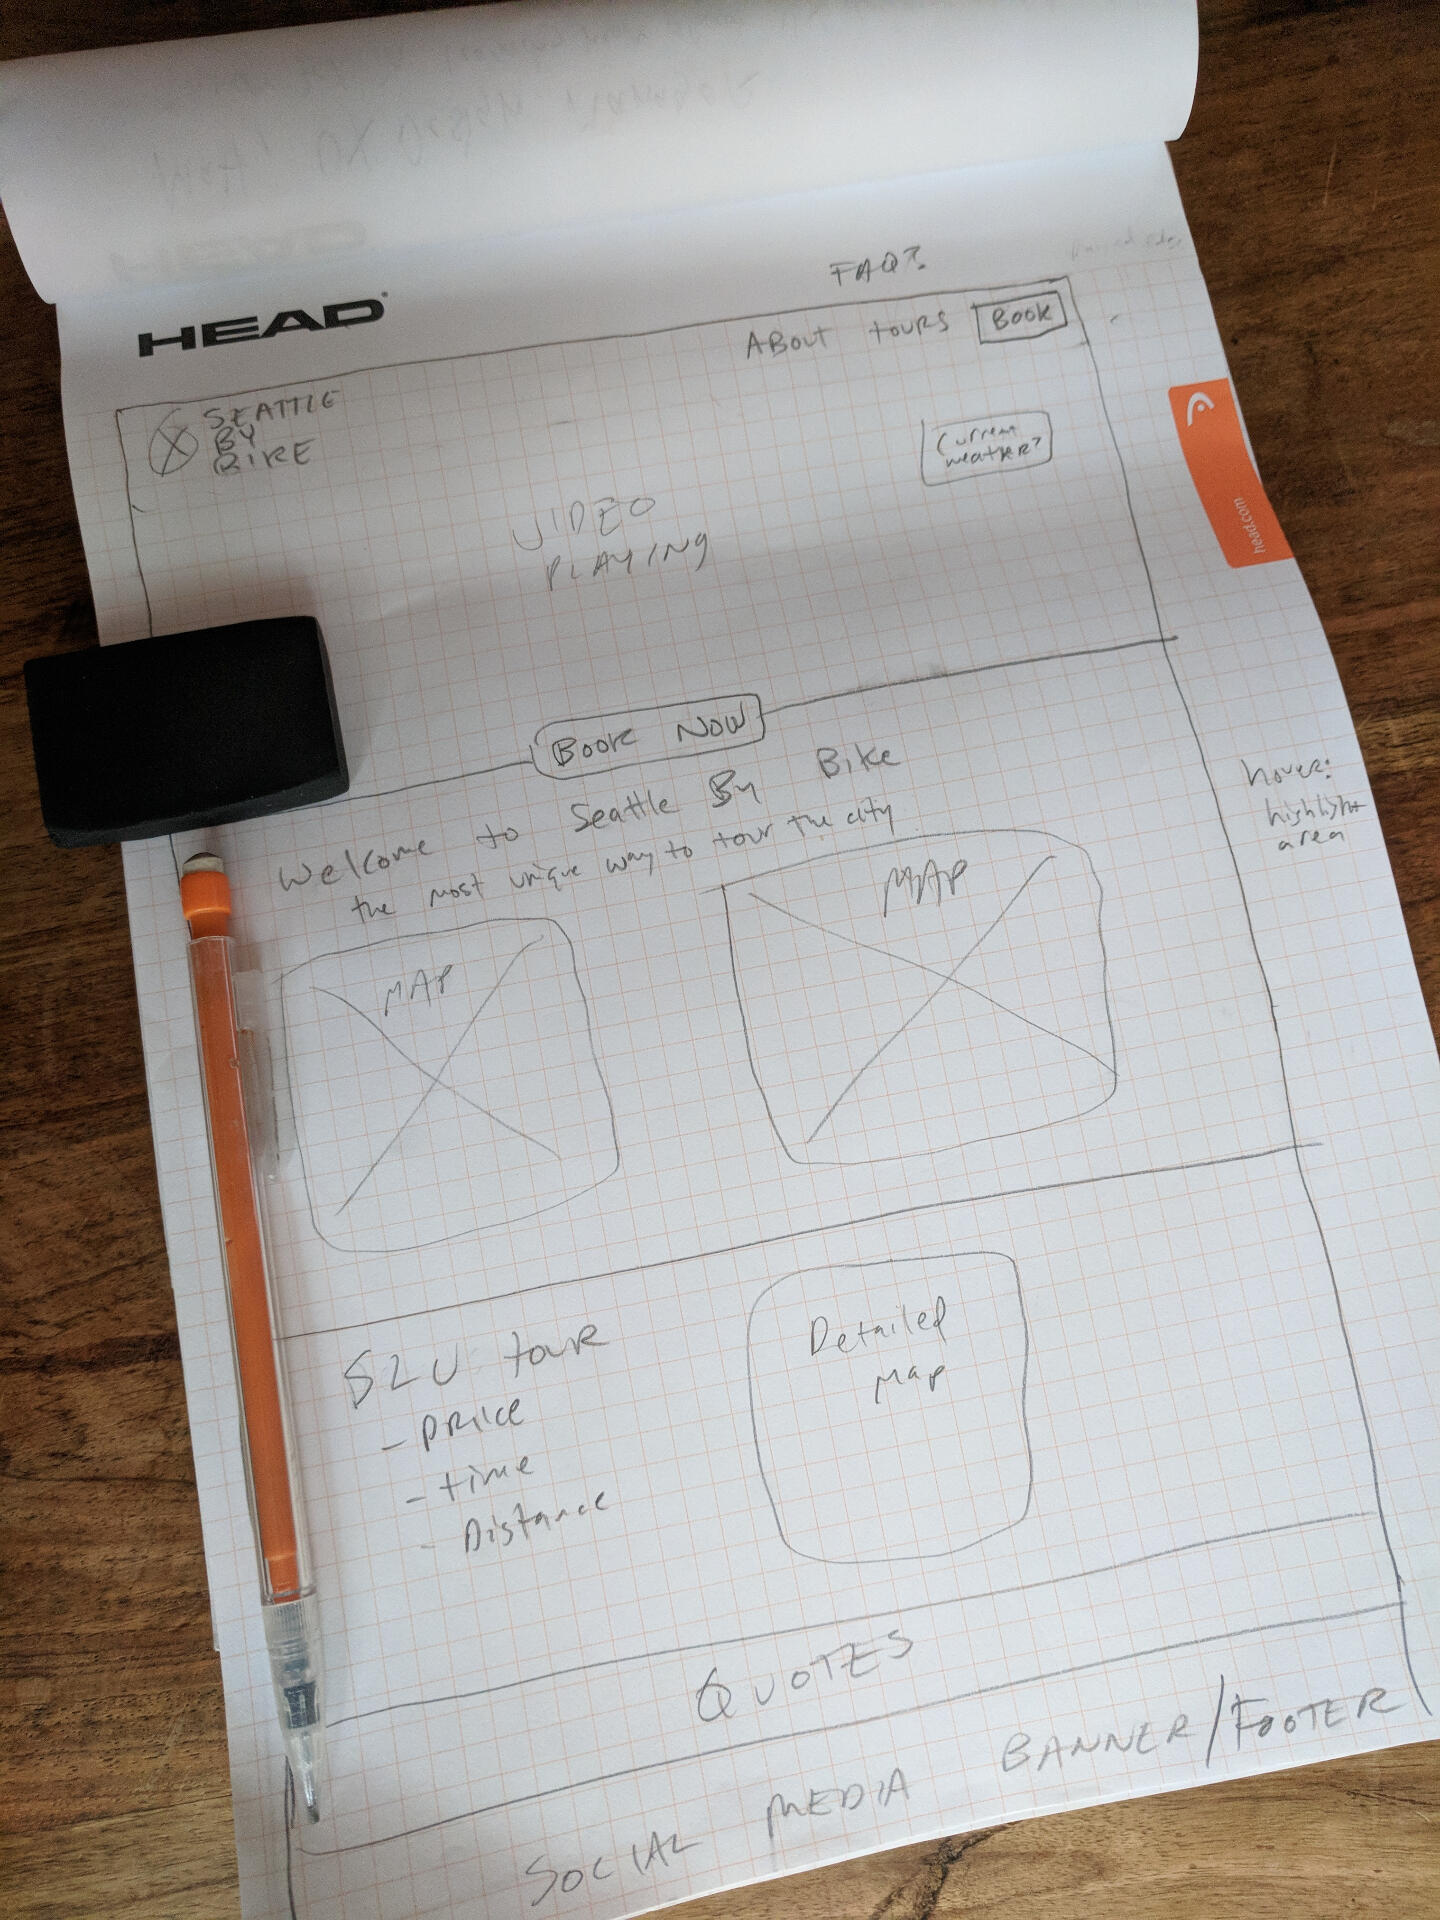 HEAD
FAQ?
ABOUT TOURS BOOK
SEATTLE
BY
BIKE
Current
weather?
VIDEO
PLAYING
head.com
BOOK NOW
Welcome to Seattle By Bike
the most unique way to tour the city
hover:
highlight
area
MAP
MAP
S2U tour
- Price
- time
- Distance
Detailed
Map
QUOTES
SOCIAL MEDIA BANNER/FOOTER